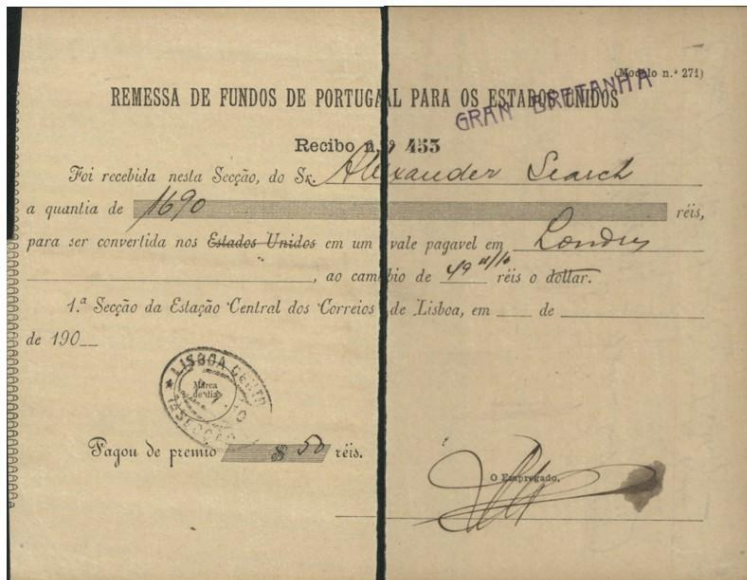 (Modelo n.º 271)
REMESSA DE FUNDOS DE PORTUGAL PARA OS ESTADOS UNIDOS
GRAN BRETANHA
Recibo n.º 455
Foi recebida nesta Secção, do Sr. Alexander Search
a quantia de 1690 réis,
para ser convertida nos Estados Unidos em um vale pagavel em Londres
, ao cambio de 49 11/16 réis o dollar.
1.ª Secção da Estação Central dos Correios de Lisboa, em ___ de ___
de 190__
LISBOA CENTRAL
Marca do dia
1ª SECÇÃO
Pagou de premio $ 50 réis.
O Empregado,